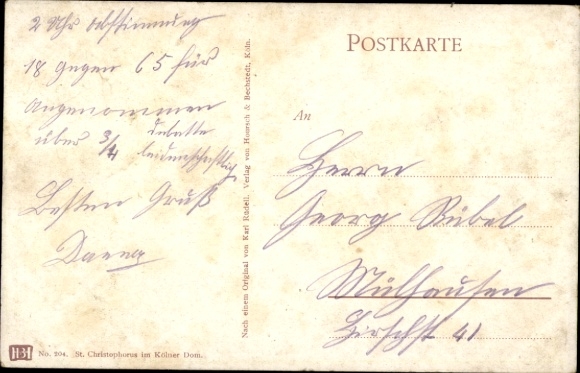 2 Uhr Abstimmung
18 gegen 65 für
Angenommen
über 3/4 debatte
leidenschaftlich
Besten Gruß
POSTKARTE
An
Herrn
Georg Rübel
Mülhausen
Hirschst 41
Nach einem Original von Karl Rüdell. Verlag von Hoursch & Bechstedt, Köln.
HB No. 204. St. Christophorus im Kölner Dom.